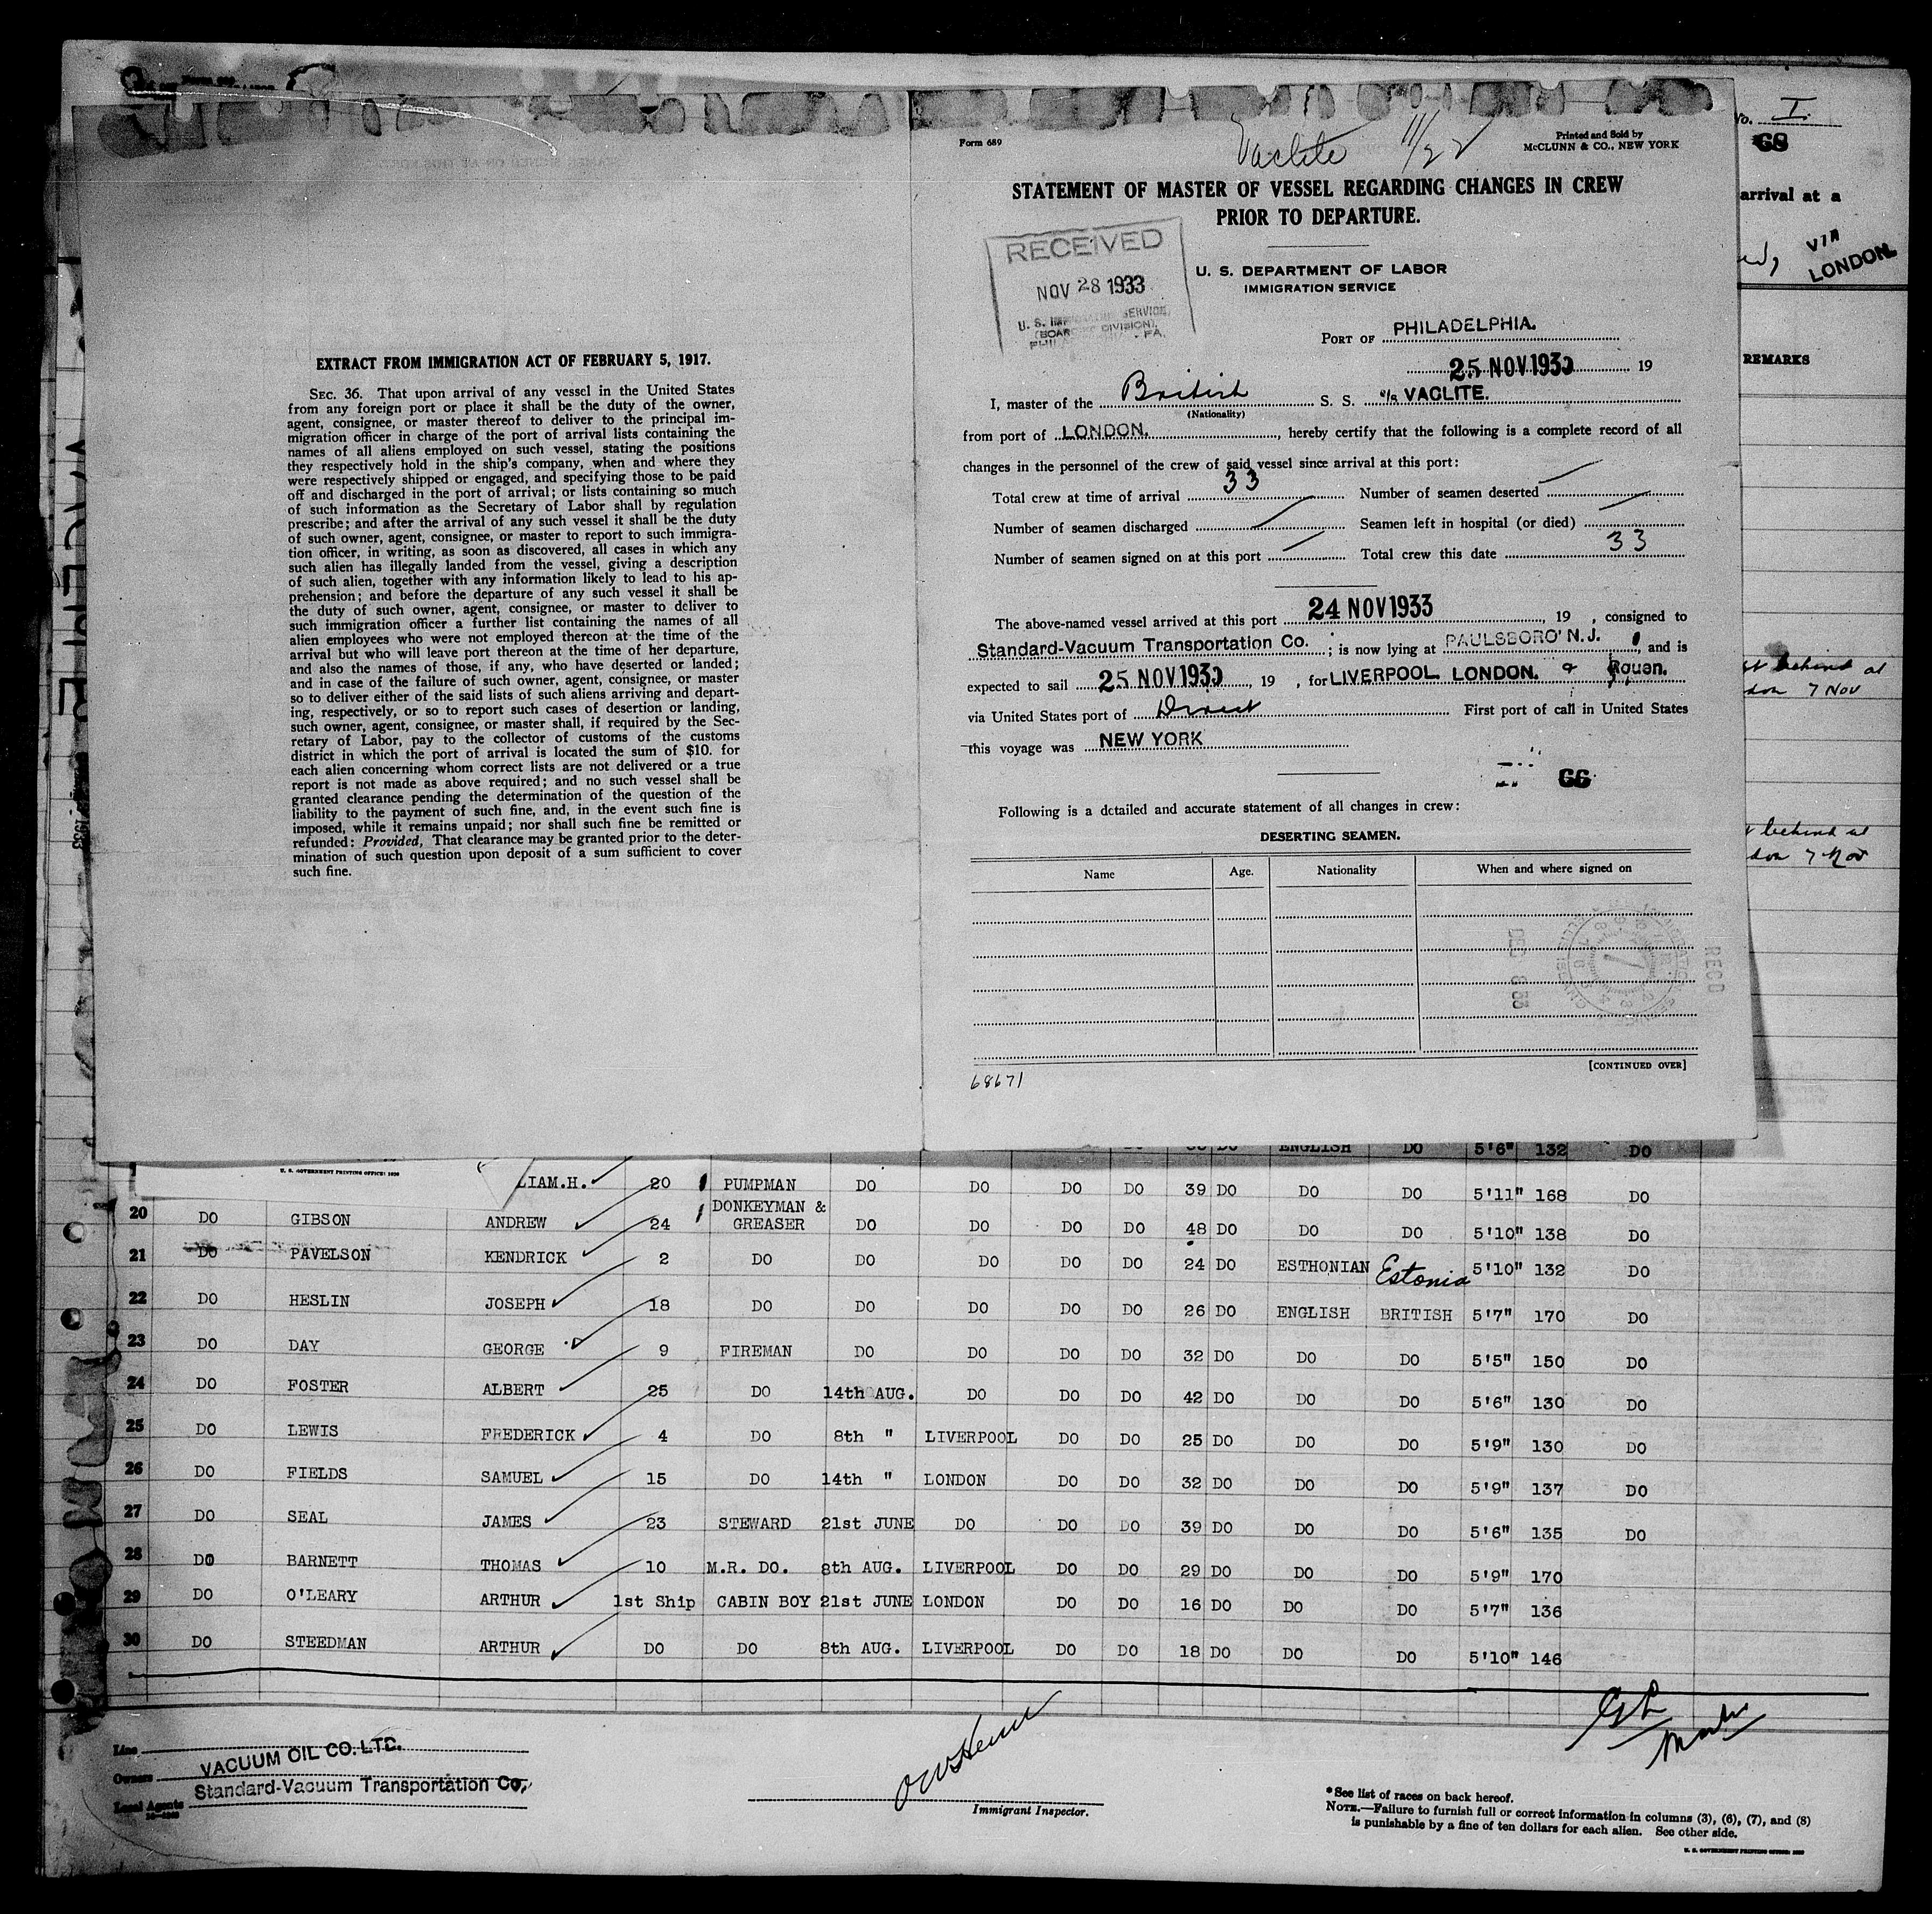 EXTRACT FROM IMMIGRATION ACT OF FEBRUARY 5, 1917.
SEC. 36. That upon arrival of any vessel in the United States
from any foreign port or place it shall be the duty of the owner,
agent, consignee, or master thereof to deliver to the principal im-
migration officer in charge of the port of arrival lists containing the
names of all aliens employed on such vessel, stating the positions
they respectively hold in the ship's company, when and where they
were respectively shipped or engaged, and specifying those to be paid
off and discharged in the port of arrival; or lists containing so much
of such information as the Secretary of Labor shall by regulation
prescribe; and after the arrival of any such vessel it shall be the duty
of such owner, agent, consignee, or master to report to such immigra-
tion officer, in writing, as soon as discovered, all cases in which any
such alien has illegally landed from the vessel, giving a description
of such alien, together with any information likely to lead to his ap-
prehension; and before the departure of any such vessel it shall be
the duty of such owner, agent, consignee, or master to deliver to
such immigration officer a further list containing the names of all
alien employees who were not employed thereon at the time of the
arrival but who will leave port thereon at the time of her departure,
and also the names of those, if any, who have deserted or landed;
and in case of the failure of such owner, agent, consignee, or master
so to deliver either of the said lists of such aliens arriving and depart-
ing, respectively, or so to report such cases of desertion or landing,
such owner, agent, consignee, or master shall, if required by the Sec-
retary of Labor, pay to the collector of customs of the customs
district in which the port of arrival is located the sum of $10. for
each alien concerning whom correct lists are not delivered or a true
report is not made as above required; and no such vessel shall be
granted clearance pending the determination of the question of the
liability to the payment of such fine, and, in the event such fine is
imposed, while it remains unpaid; nor shall such fine be remitted or
refunded: Provided, That clearance may be granted prior to the deter-
mination of such question upon deposit of a sum sufficient to cover
such fine.
Form 689
Vaclite 11/22
Printed and Sold by
McCLUNN & CO., NEW YORK
STATEMENT OF MASTER OF VESSEL REGARDING CHANGES IN CREW
PRIOR TO DEPARTURE.
RECEIVED
NOV 28 1933
U. S. IMMIGRATION SERVICE
(BOARDING DIVISION)
U. S. DEPARTMENT OF LABOR
IMMIGRATION SERVICE
PORT OF PHILADELPHIA.
25 NOV 1933 19
I, master of the British S. S. VACLITE.
(Nationality)
from port of LONDON., hereby certify that the following is a complete record of all
changes in the personnel of the crew of said vessel since arrival at this port:
Total crew at time of arrival 33 Number of seamen deserted
Number of seamen discharged Seamen left in hospital (or died)
Number of seamen signed on at this port Total crew this date 33
The above-named vessel arrived at this port 24 NOV 1933, 19 , consigned to
Standard-Vacuum Transportation Co. ; is now lying at PAULSBORO' N.J. , and is
expected to sail 25 NOV 1933, 19 , for LIVERPOOL. LONDON. & Rouen.
via United States port of Direct First port of call in United States
this voyage was NEW YORK
66
Following is a detailed and accurate statement of all changes in crew:
DESERTING SEAMEN.
Name Age. Nationality When and where signed on
DEC 8 33
RECD
[CONTINUED OVER]
68671
No. I.
68
arrival at a
VIA
LONDON.
REMARKS
behind at
7 Nov
behind at
7 Nov
1933
ENGLISH DO 5'6" 132 DO
U. S. GOVERNMENT PRINTING OFFICE: 1930
LIAM.H. 20 PUMPMAN DO DO DO DO 39 DO DO DO 5'11" 168 DO
20 DO GIBSON ANDREW 24 DONKEYMAN & GREASER DO DO DO DO 48 DO DO DO 5'10" 138 DO
21 DO PAVELSON KENDRICK 2 DO DO DO DO DO 24 DO ESTHONIAN Estonia 5'10" 132 DO
22 DO HESLIN JOSEPH 18 DO DO DO DO DO 26 DO ENGLISH BRITISH 5'7" 170 DO
23 DO DAY GEORGE 9 FIREMAN DO DO DO DO 32 DO DO DO 5'5" 150 DO
24 DO FOSTER ALBERT 25 DO 14th AUG. DO DO DO 42 DO DO DO 5'6" 130 DO
25 DO LEWIS FREDERICK 4 DO 8th " LIVERPOOL DO DO 25 DO DO DO 5'9" 130 DO
26 DO FIELDS SAMUEL 15 DO 14th " LONDON DO DO 32 DO DO DO 5'9" 137 DO
27 DO SEAL JAMES 23 STEWARD 21st JUNE DO DO DO 39 DO DO DO 5'6" 135 DO
28 DO BARNETT THOMAS 10 M.R. DO. 8th AUG. LIVERPOOL DO DO 29 DO DO DO 5'9" 170
29 DO O'LEARY ARTHUR 1st Ship CABIN BOY 21st JUNE LONDON DO DO 16 DO DO DO 5'7" 136
30 DO STEEDMAN ARTHUR DO DO 8th AUG. LIVERPOOL DO DO 18 DO DO DO 5'10" 146
Line
Owners VACUUM OIL CO. LTD.
Local Agents Standard-Vacuum Transportation Co.
Immigrant Inspector.
Master
*See list of races on back hereof.
NOTE.—Failure to furnish full or correct information in columns (3), (6), (7), and (8)
is punishable by a fine of ten dollars for each alien. See other side.
U. S. GOVERNMENT PRINTING OFFICE: 1930